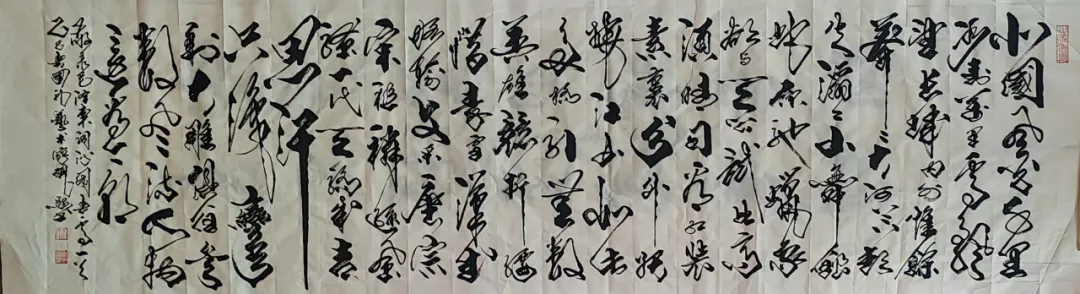 北國風光千里
冰封萬里雪飄
望長城內外惟餘
莽莽大河上下頓
失滔滔山舞銀
蛇原馳蠟象
欲與天公試比高
須晴日看紅裝
素裹分外妖
嬈江山如此
多嬌引無數
英雄競折腰
惜秦皇漢武
略輸文采唐宗
宋祖稍遜風
騷一代天驕成吉
思汗
只識彎
射大雕俱往矣
數風流人物
還看今朝
敬录毛泽东词沁園春雪一首